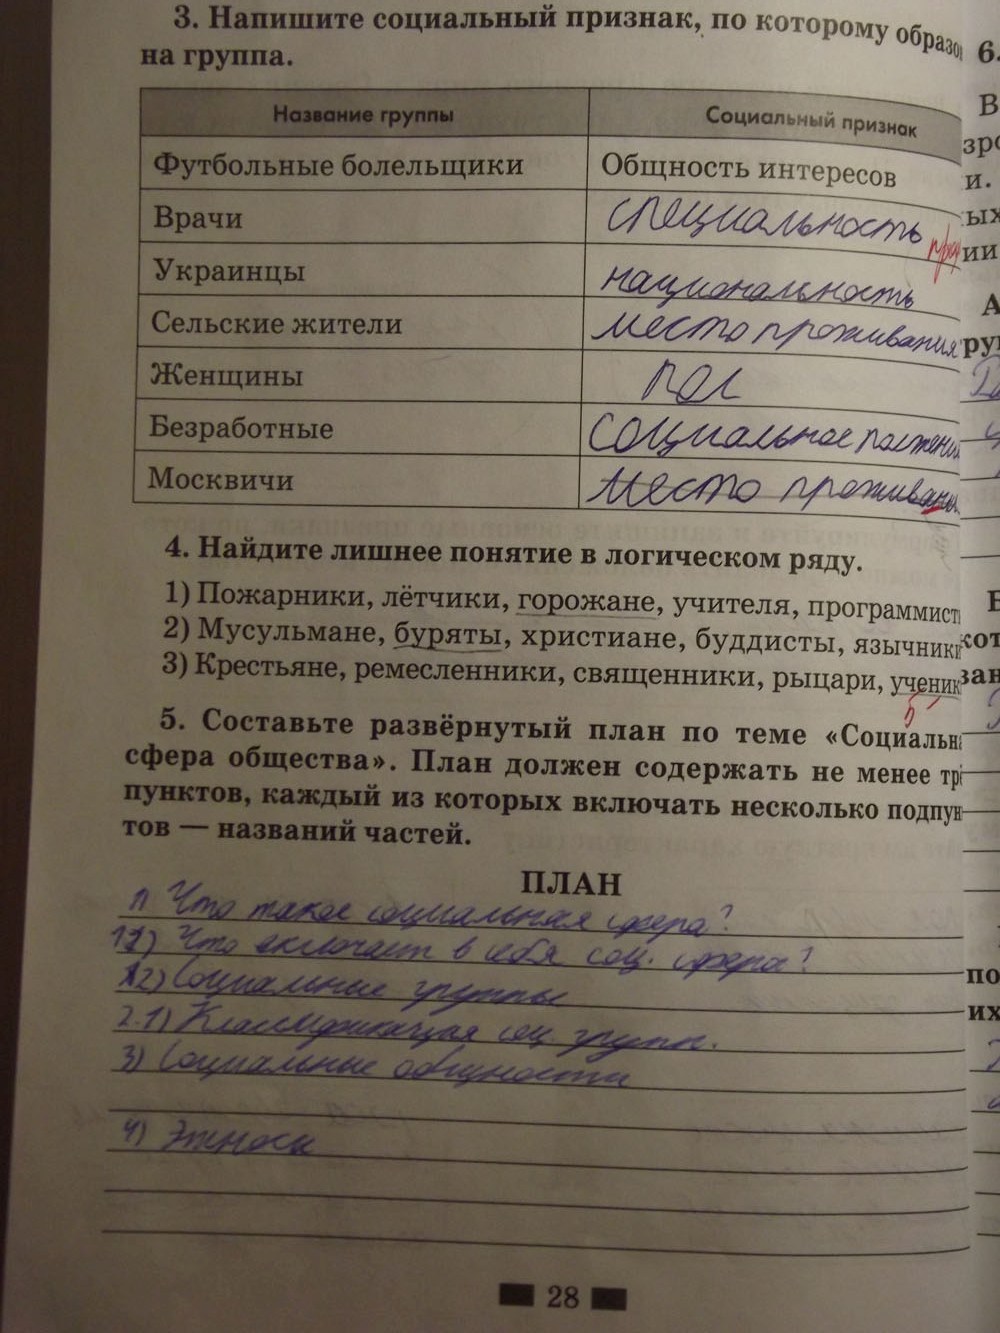 3. Напишите социальный признак, по которому образо
на группа.
Название группы Социальный признак
Футбольные болельщики Общность интересов
Врачи специальность
Украинцы национальность
Сельские жители место проживания
Женщины пол
Безработные социальное положени
Москвичи место проживания
4. Найдите лишнее понятие в логическом ряду.
1) Пожарники, лётчики, горожане, учителя, программист
2) Мусульмане, буряты, христиане, буддисты, язычники
3) Крестьяне, ремесленники, священники, рыцари, ученик
5
5. Составьте развёрнутый план по теме «Социальн
сфера общества». План должен содержать не менее трё
пунктов, каждый из которых включать несколько подпун
тов — названий частей.
ПЛАН
1) Что такое социальная сфера?
1.1) Что включает в себя соц. сфера?
2) Социальные группы
2.1) Классификация соц. групп.
3) Социальные общности
4) Этносы
28
6.
В
зро
и.
ых
ии
А
руп
Е
кот
зан
по
их